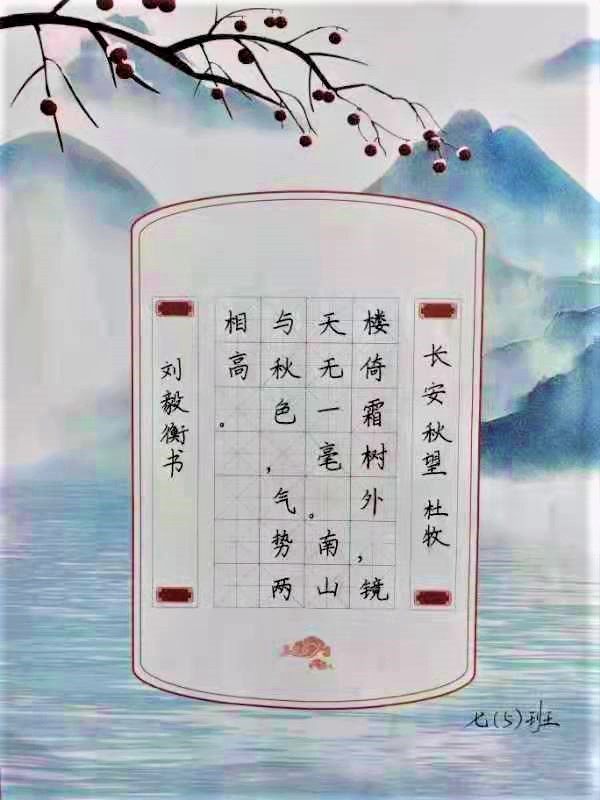 长安秋望 杜牧
楼倚霜树外，镜
天无一毫。南山
与秋色，气势两
相高。
刘毅衡书
七(5)班